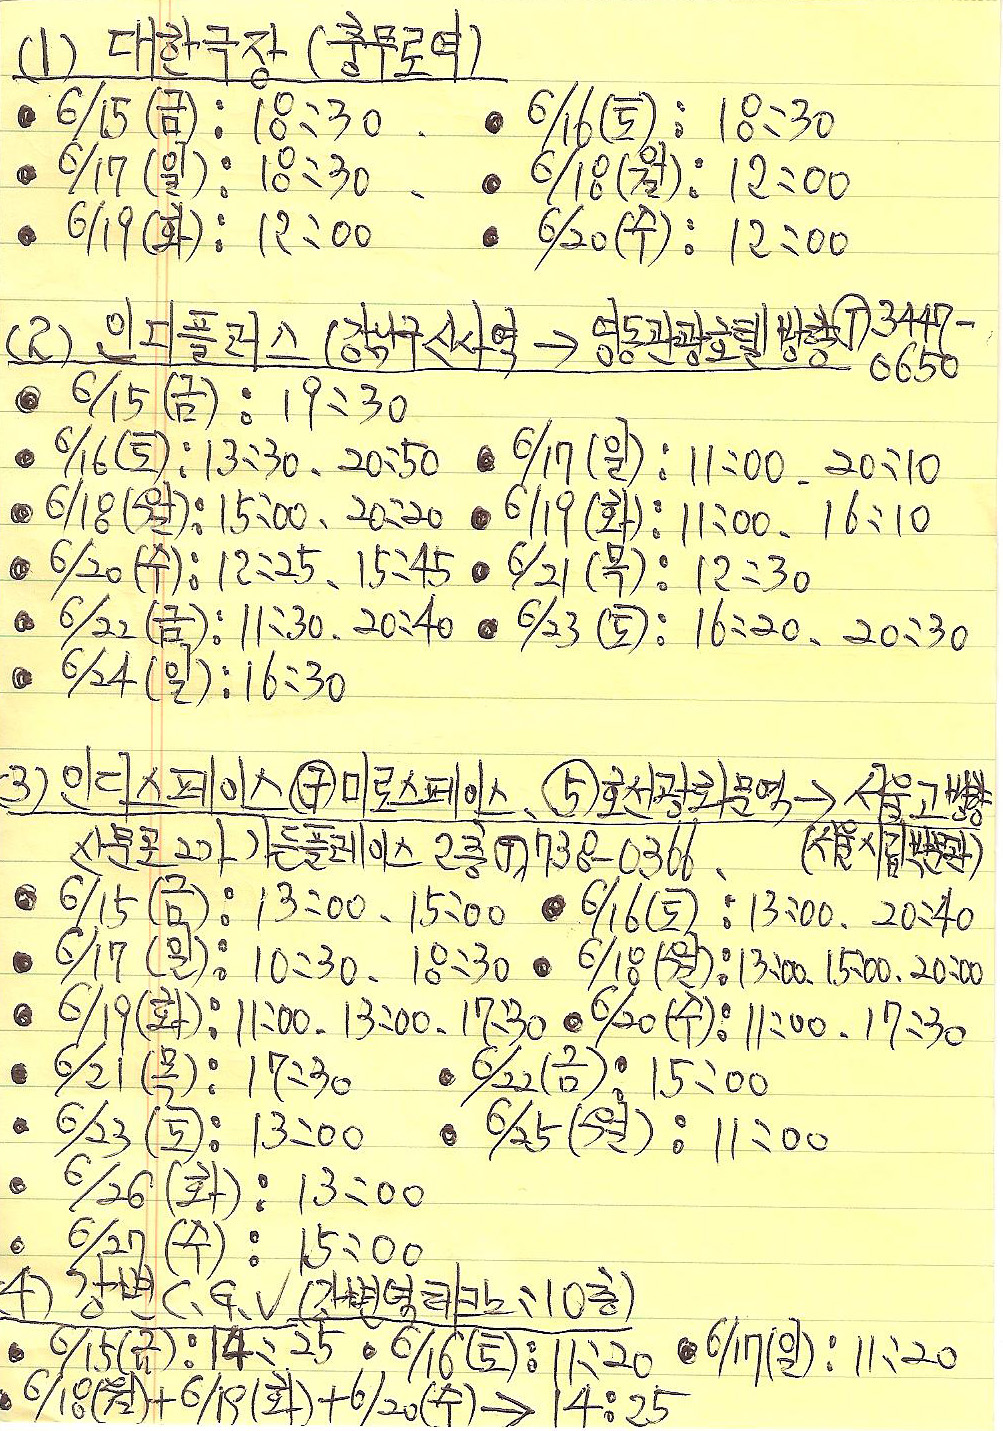 (1) 대한극장 (충무로역)
• 6/15(금): 18:30 . • 6/16(토): 18:30
• 6/17(일): 18:30 . • 6/18(월): 12:00
• 6/19(화): 12:00 • 6/20(수): 12:00
(2) 인디플러스 (강남구신사역 → 영동관광호텔 방향 T) 3447-
0650
• 6/15(금): 19:30
• 6/16(토): 13:30. 20:50 • 6/17(일): 11:00. 20:10
• 6/18(월): 15:00. 20:20 • 6/19(화): 11:00. 16:10
• 6/20(수): 12:25. 15:45 • 6/21(목): 12:30
• 6/22(금): 11:30. 20:40 • 6/23(토): 16:20. 20:30
• 6/24(일): 16:30
3) 인디스페이스 (구) 미로스페이스. (5)호선광화문역 → 서울고방향
신문로2가 가든플레이스 2층 (T) 738-0366. (서울시립박물관)
• 6/15(금): 13:00. 15:00 • 6/16(토): 13:00. 20:40
• 6/17(일): 10:30. 18:30 • 6/18(월): 13:00. 15:00. 20:00
• 6/19(화): 11:00. 13:00. 17:30 • 6/20(수): 11:00. 17:30
• 6/21(목): 17:30 • 6/22(금): 15:00
• 6/23(토): 13:00 • 6/25(월): 11:00
• 6/26(화): 13:00
• 6/27(수): 15:00
4) 강변 C.G.V (강변역테크노:10층)
• 6/15(금): 14:25 • 6/16(토): 11:20 • 6/17(일): 11:20
• 6/18(월)+6/19(화)+6/20(수) → 14:25